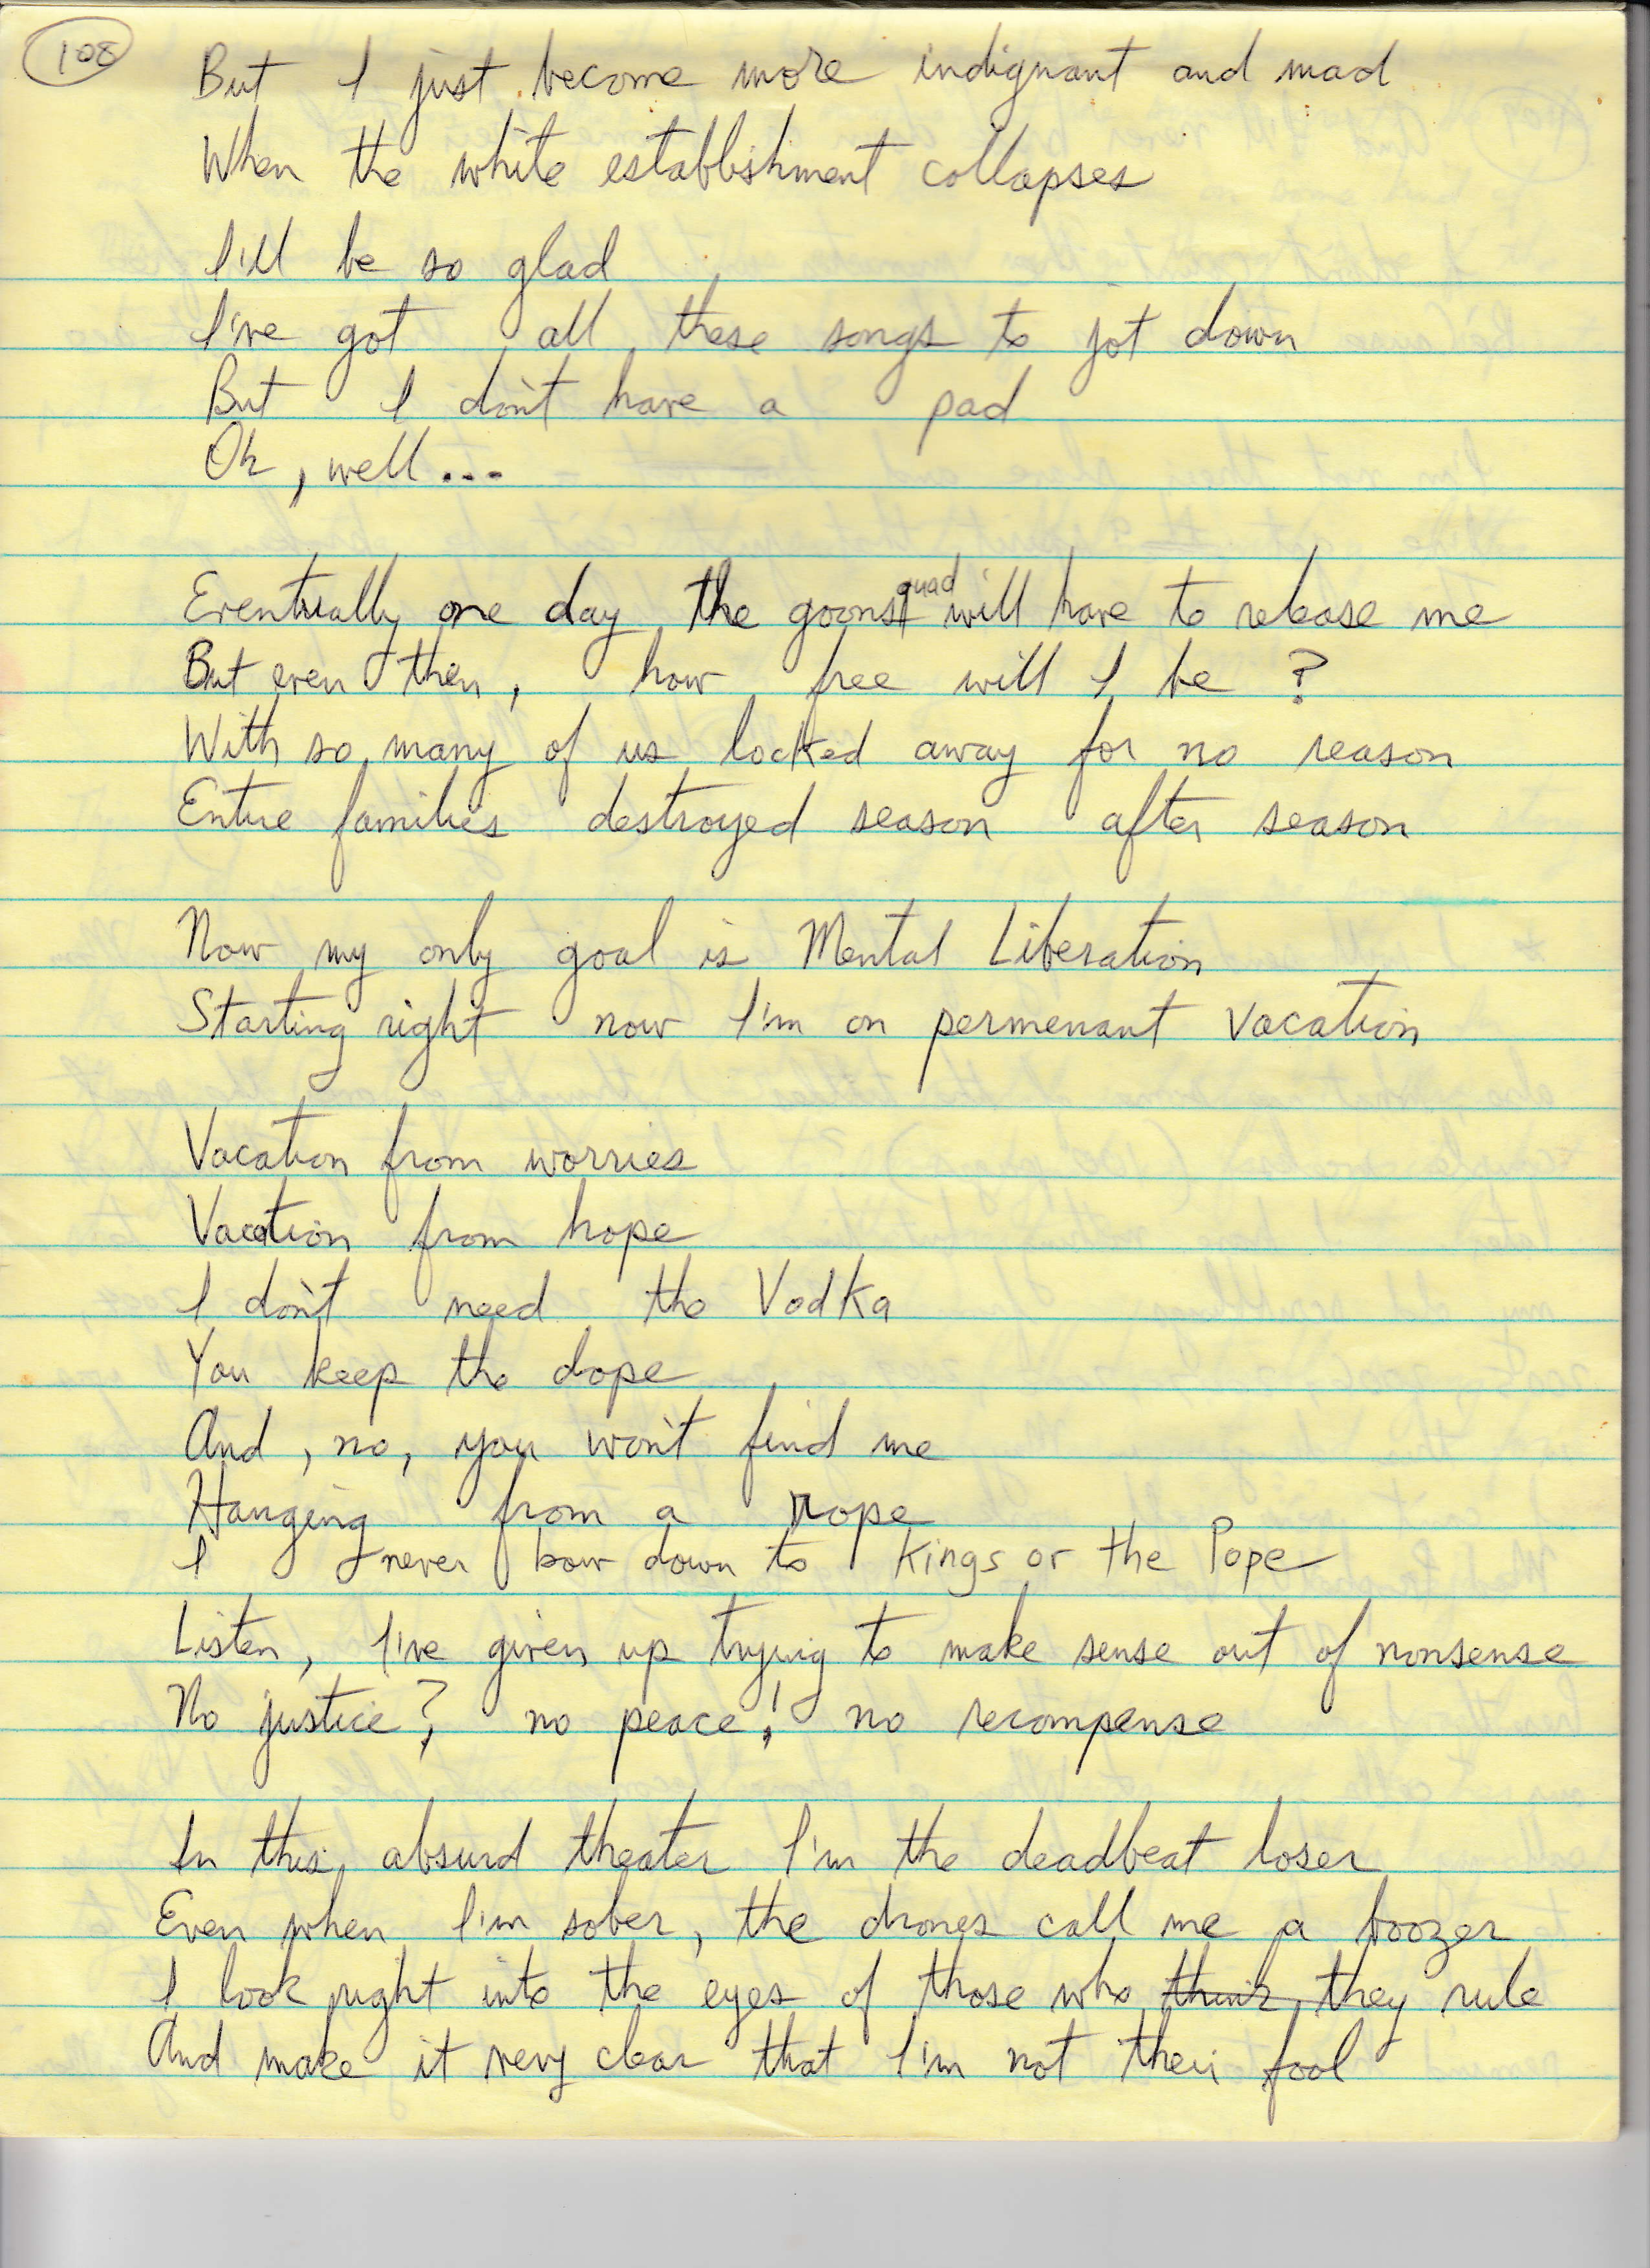 108
But I just become more indignant and mad
When the white establishment collapses
I'll be so glad
I've got all these songs to jot down
But I don't have a pad
Oh, well...
Eventually one day the goonsquad will have to release me
But even then, how free will I be?
With so many of us locked away for no reason
Entire families destroyed season after season
Now my only goal is Mental Liberation
Starting right now I'm on permenant vacation
Vacation from worries
Vacation from hope
I don't need the Vodka
You keep the dope
And, no, you won't find me
Hanging from a rope
I never bow down to kings or the Pope
Listen, I've given up trying to make sense out of nonsense
No justice?, no peace! no recompense
In this absurd theater I'm the deadbeat loser
Even when I'm sober, the drones call me a boozer
I look right into the eyes of those who think they rule
And make it very clear that I'm not their fool